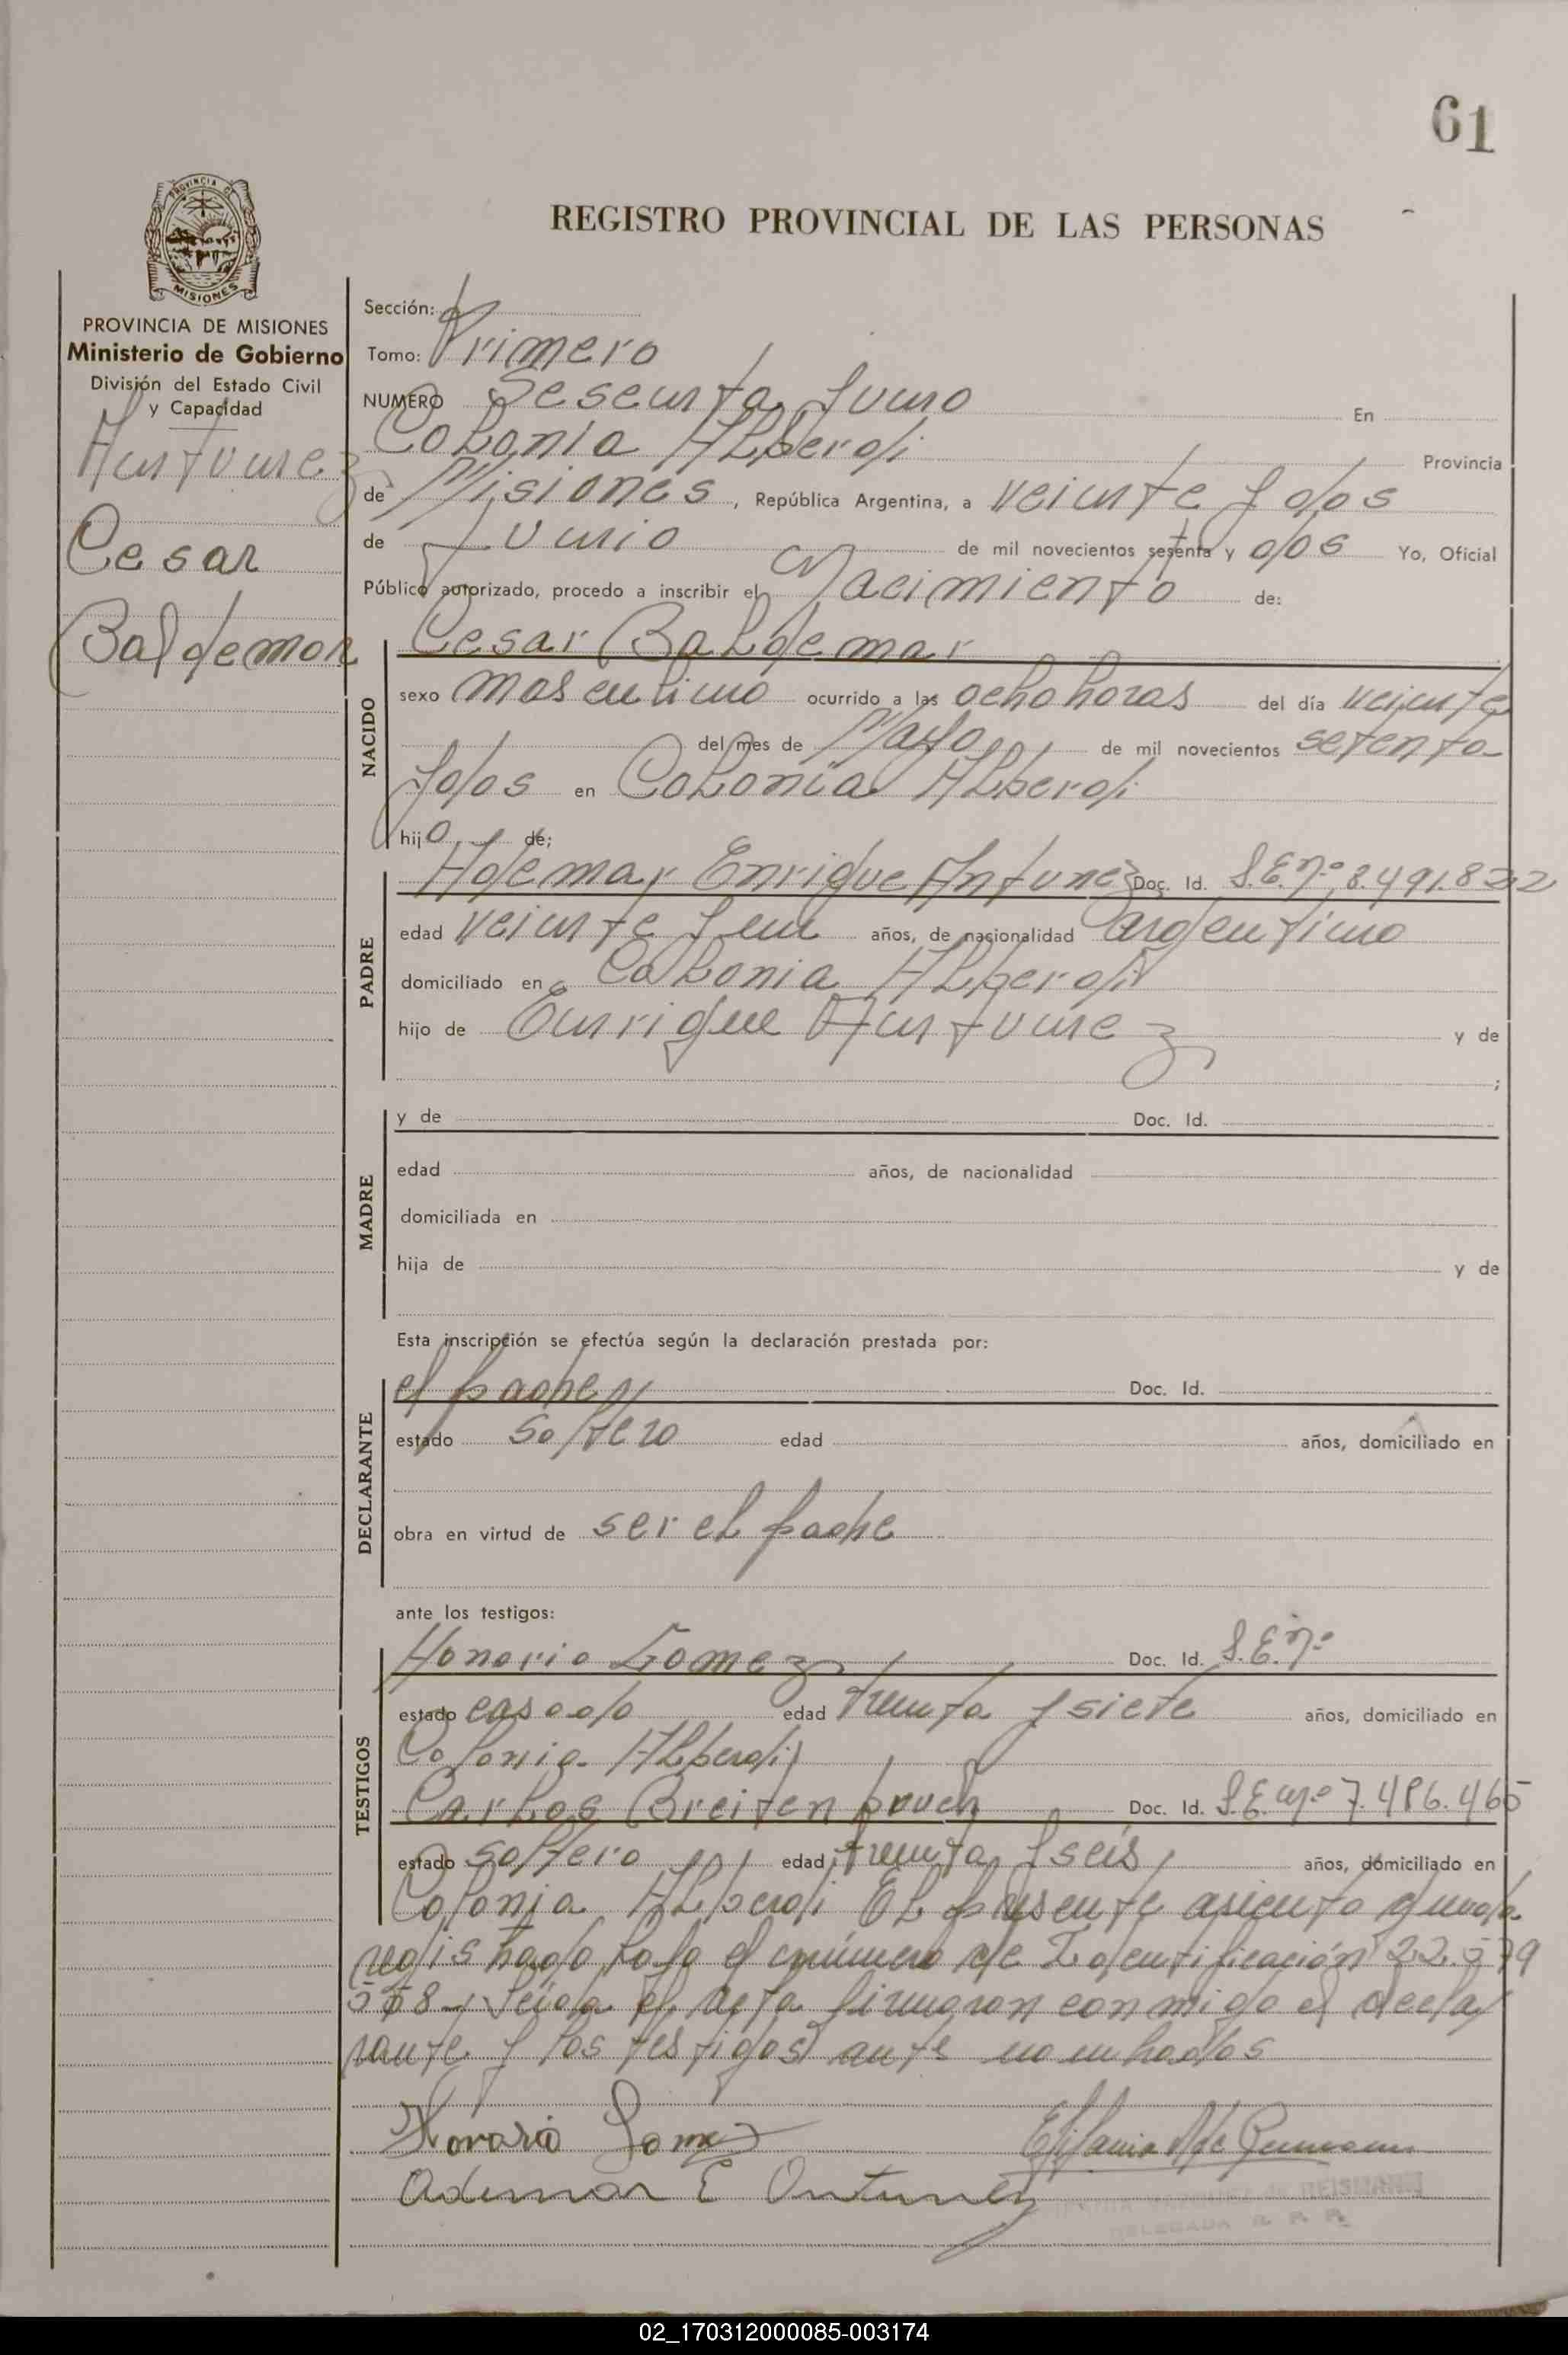 61
REGISTRO PROVINCIAL DE LAS PERSONAS
PROVINCIA DE
MISIONES
PROVINCIA DE MISIONES
Ministerio de Gobierno
División del Estado Civil
y Capacidad
Antunez
Cesar
Baldemar
Sección:
Tomo: Primero
NUMERO Sesenta y uno En
Colonia Alberdi Provincia
de Misiones, República Argentina, a veinte y dos
de Junio de mil novecientos setenta y dos Yo, Oficial
Público autorizado, procedo a inscribir el Nacimiento de:
NACIDO
Cesar Baldemar
sexo masculino ocurrido a las ocho horas del día veinte
del mes de Mayo de mil novecientos setenta
y dos en Colonia Alberdi
hijo de;
PADRE
Ademar Enrique Antunez Doc. Id. L.E.nº 8.491.822
edad veinte y un años, de nacionalidad argentino
domiciliado en Colonia Alberdi
hijo de Enrique Antunez y de
;
MADRE
y de Doc. Id.
edad años, de nacionalidad
domiciliada en
hija de y de
Esta inscripción se efectúa según la declaración prestada por:
DECLARANTE
el padre Doc. Id.
estado soltero edad años, domiciliado en
obra en virtud de ser el padre
ante los testigos:
TESTIGOS
Honorio Gomez Doc. Id. L.E.nº
estado casado edad treinta y siete años, domiciliado en
Colonia Alberdi
Carlos Breitenbruch Doc. Id. L.E.nº 7.486.465
estado soltero edad treinta y seis años, domiciliado en
Colonia Alberdi El presente asiento queda
registrado bajo el número de Identificación 22.579
558 Leida el acta firmaron conmigo el decla
rante y los testigos ante nombrados
Honorio Gomez
Ademar E Antunez
DELEGADA R. P. P.
02_170312000085-003174